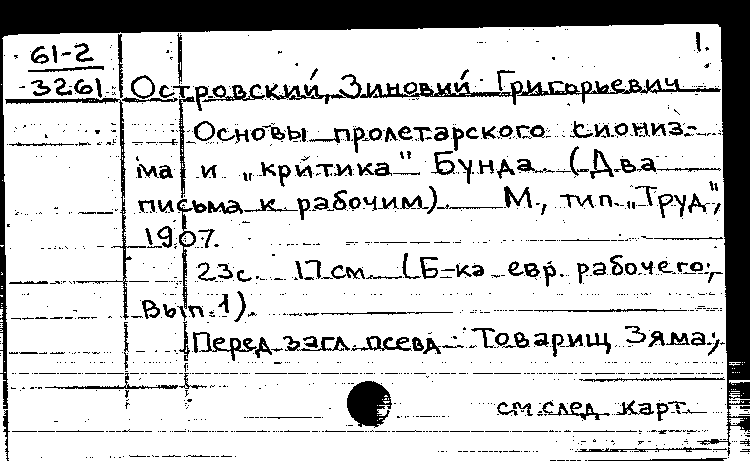 61-2 1.
3261 Островский, Зиновий Григорьевич
Основы пролетарского сиониз-
ма и „критика" Бунда. (Два
письма к рабочим). М., тип. „Труд",
1907.
23с. 17см. (Б-ка евр. рабочего;
Вып.1).
Перед загл. псевд.: Товарищ Зяма;
см.след. карт.